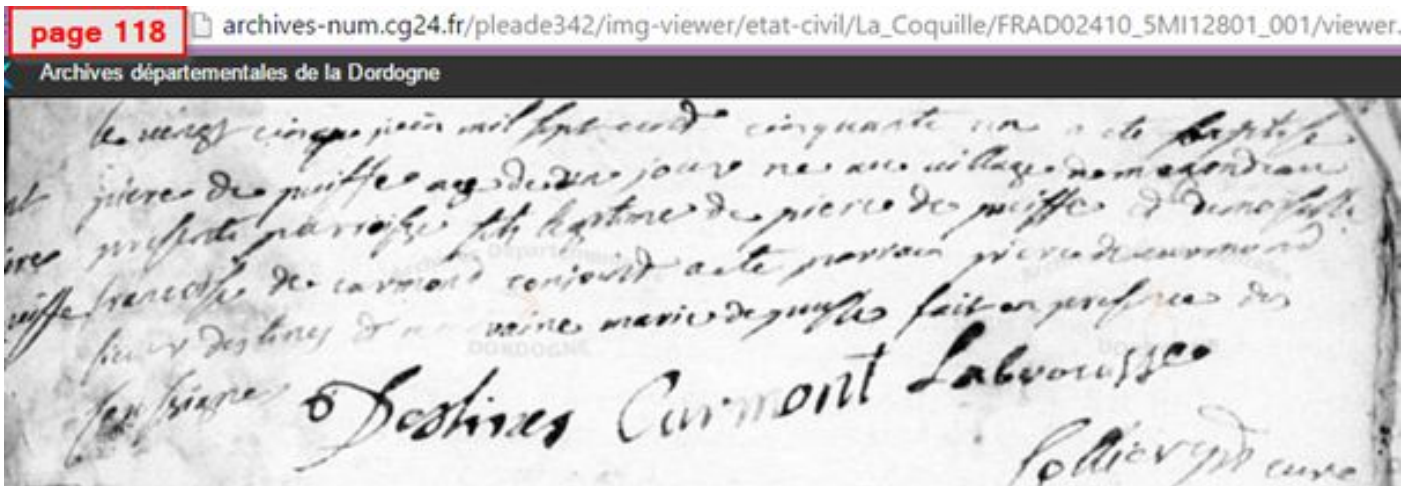 page 118
archives-num.cg24.fr/pleade342/img-viewer/etat-civil/La_Coquille/FRAD02410_5MI12801_001/viewer.
Archives départementales de la Dordogne
le vingt cinque juin mil sept cents cinquante un a ete baptise
pierre de puiffe age de un jour ne au village
presente parroisse fils legitime de pierre de puiffe et demoiselle
francoise de curmont conjoints a ete parrain pierre de curmond
sieur destines et marraine marie de puiffe fait en presence des
soussignes Destines Curmont Labrousse
curé